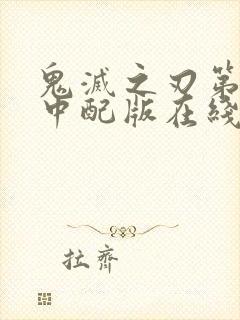 鬼滅之刃第
中配版在綫
拉齊